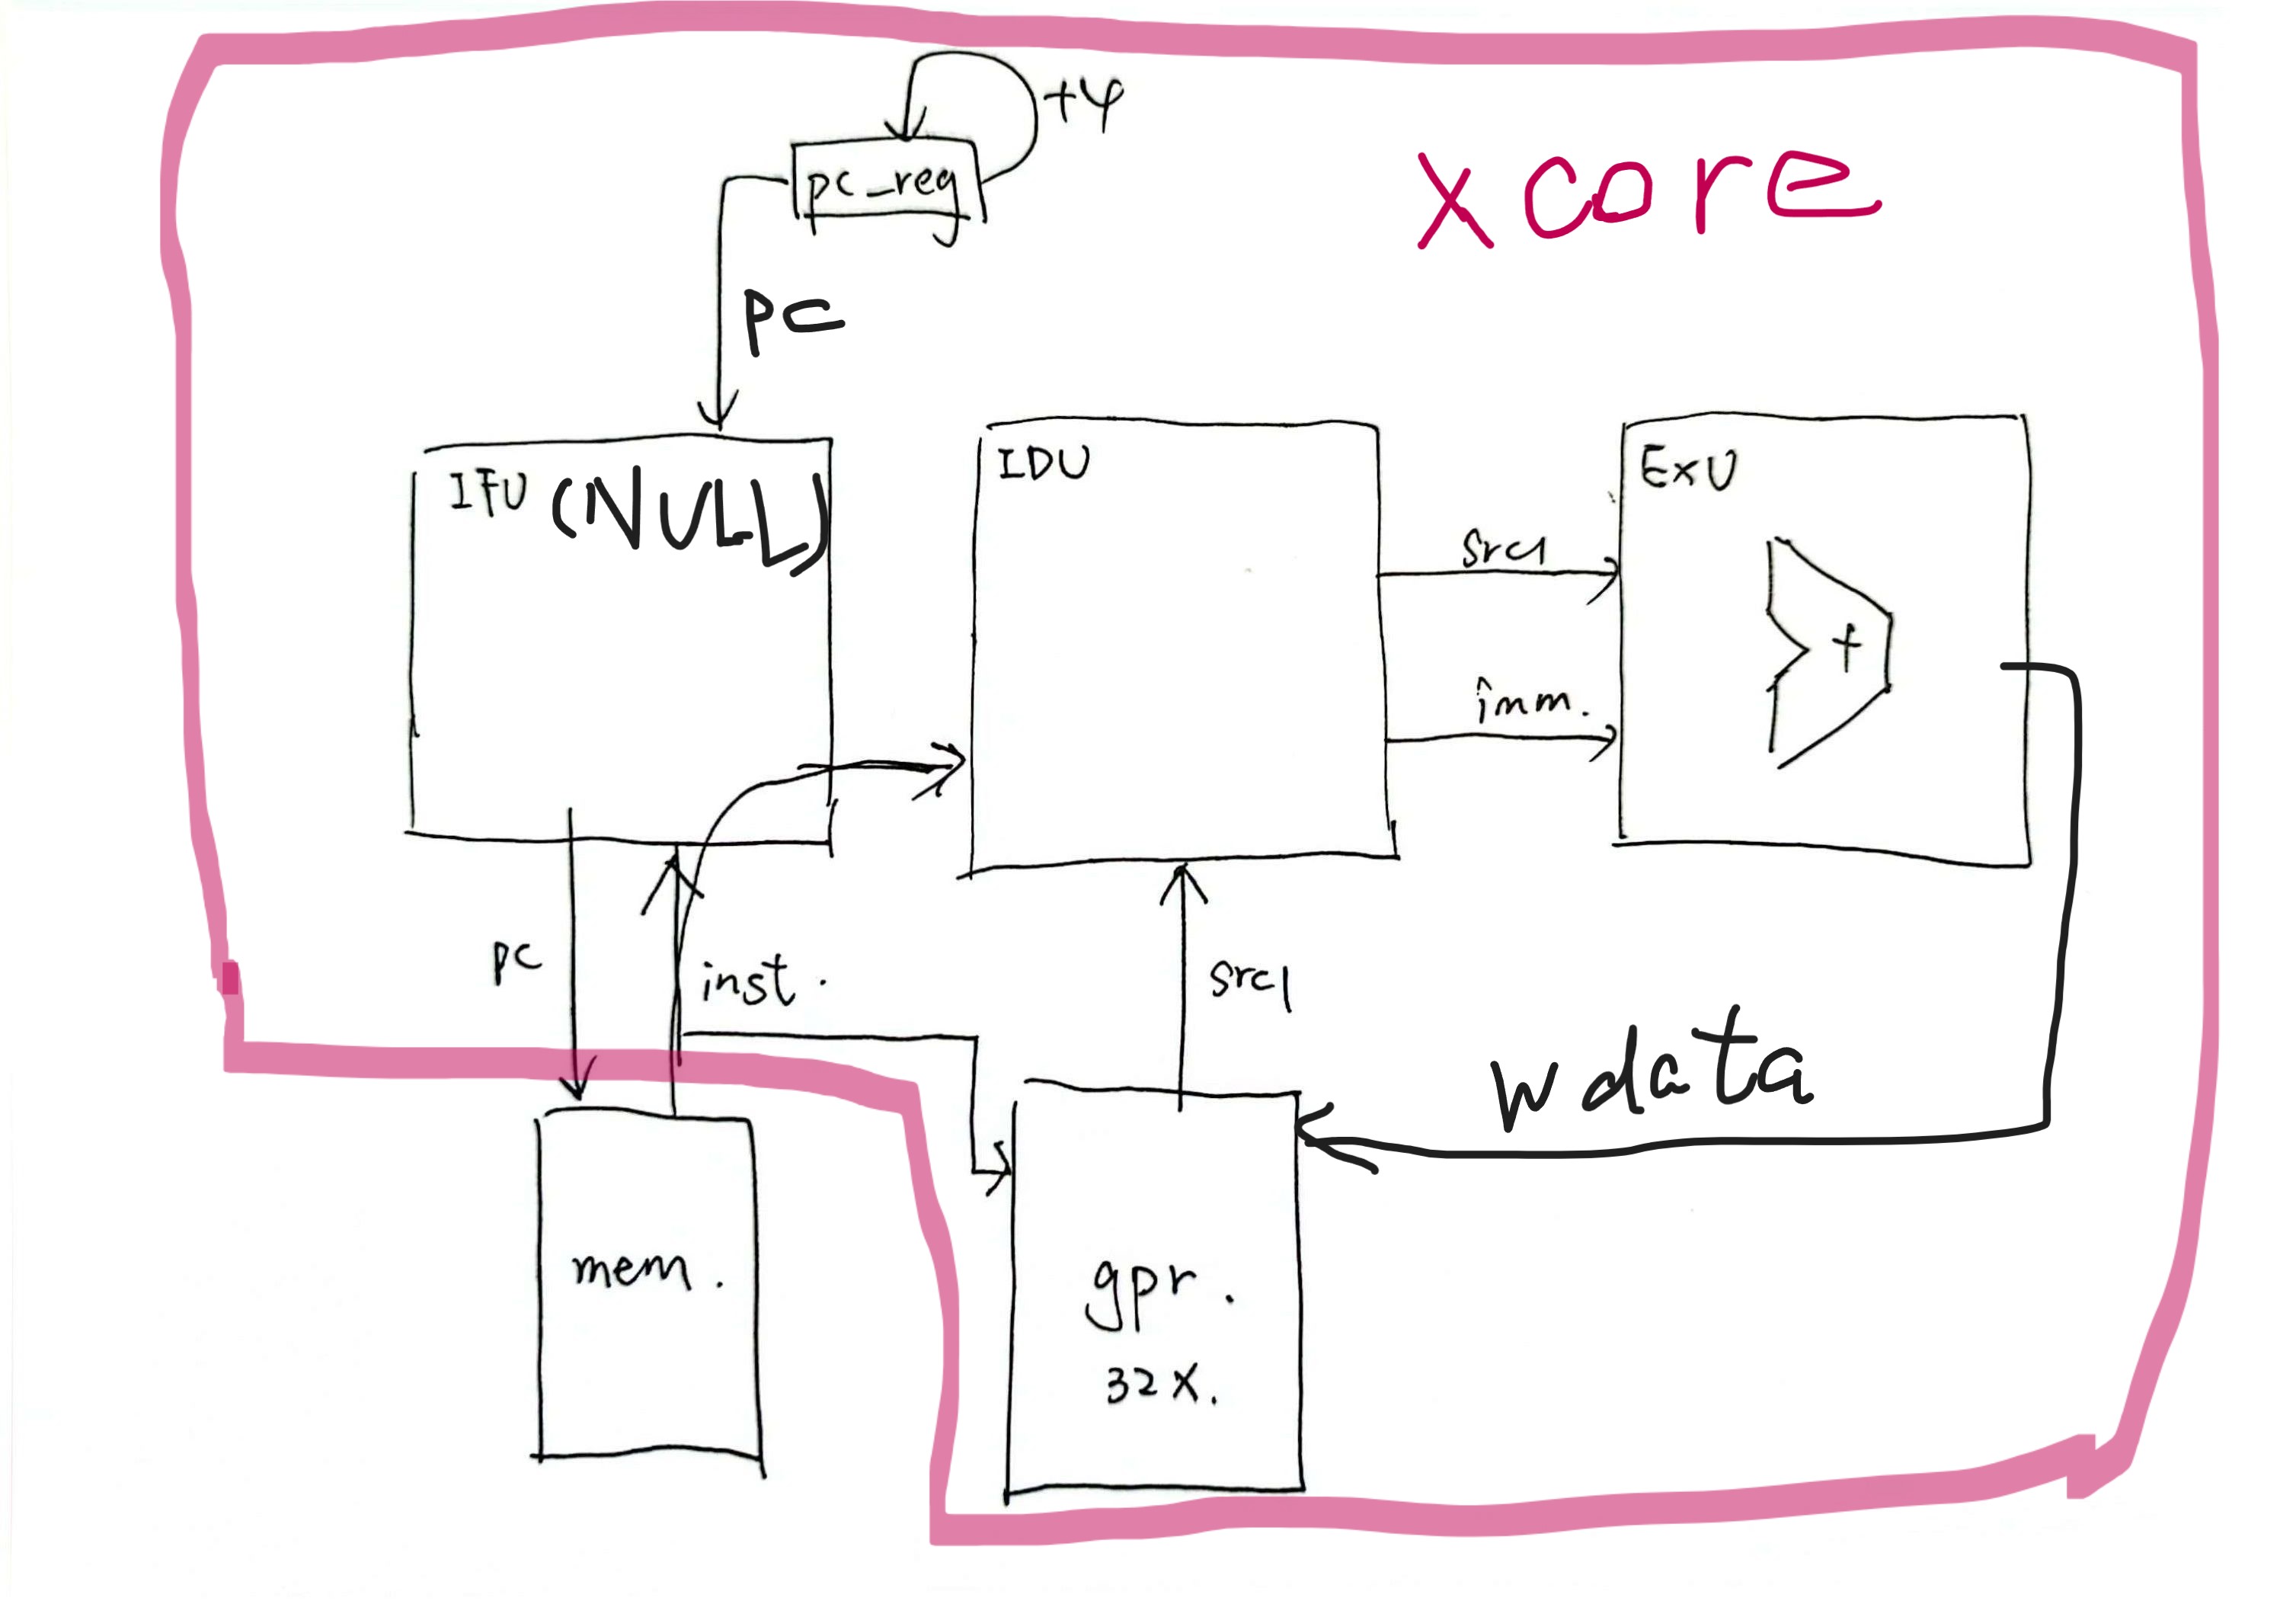 +4
pc_reg
xcore
pc
IFU (NULL)
IDU
EXU
src1
+
imm.
pc
inst.
src1
wdata
mem.
gpr.
32x.